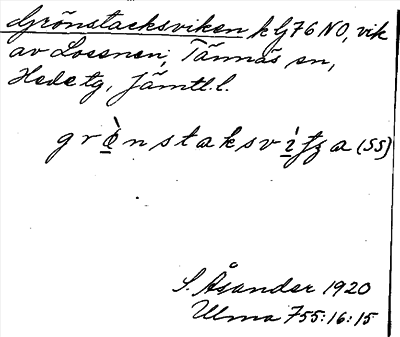 Grönstacksviken k Gj76 NO, vik
av Lossnen, Tännäs sn,
Hede tg, Jämtl. l.
grø̀nstaksvìtʃa (SS)
S. Åsander 1920
Ulma 755:16:15